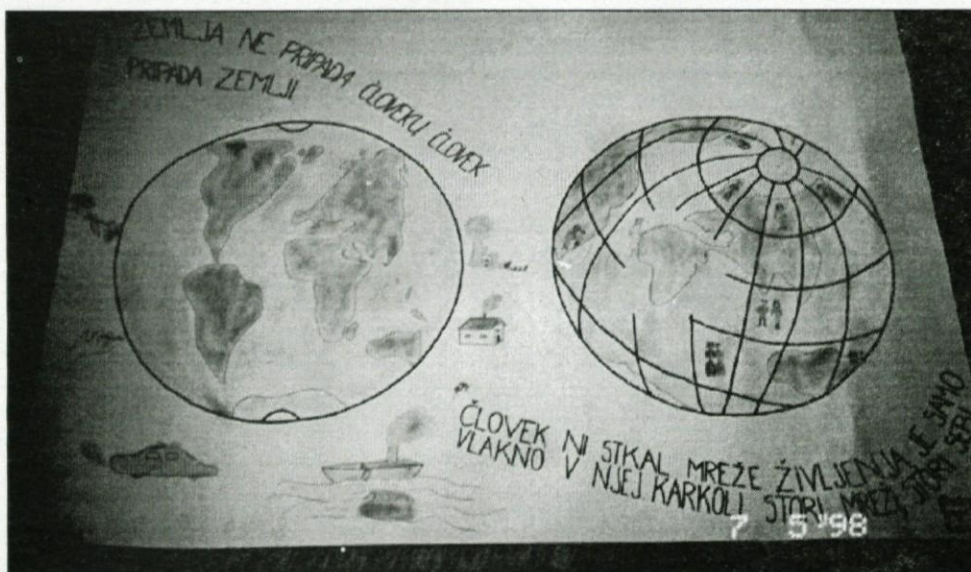 ZEMLJA NE PRIPADA ČLOVEKU ČLOVEK
PRIPADA ZEMLJI
ČLOVEK NI STKAL MREŽE ŽIVLJENJA JE SAMO
VLAKNO V NJEJ KARKOLI STORI MREŽI, STORI SEBI
7 5 '98